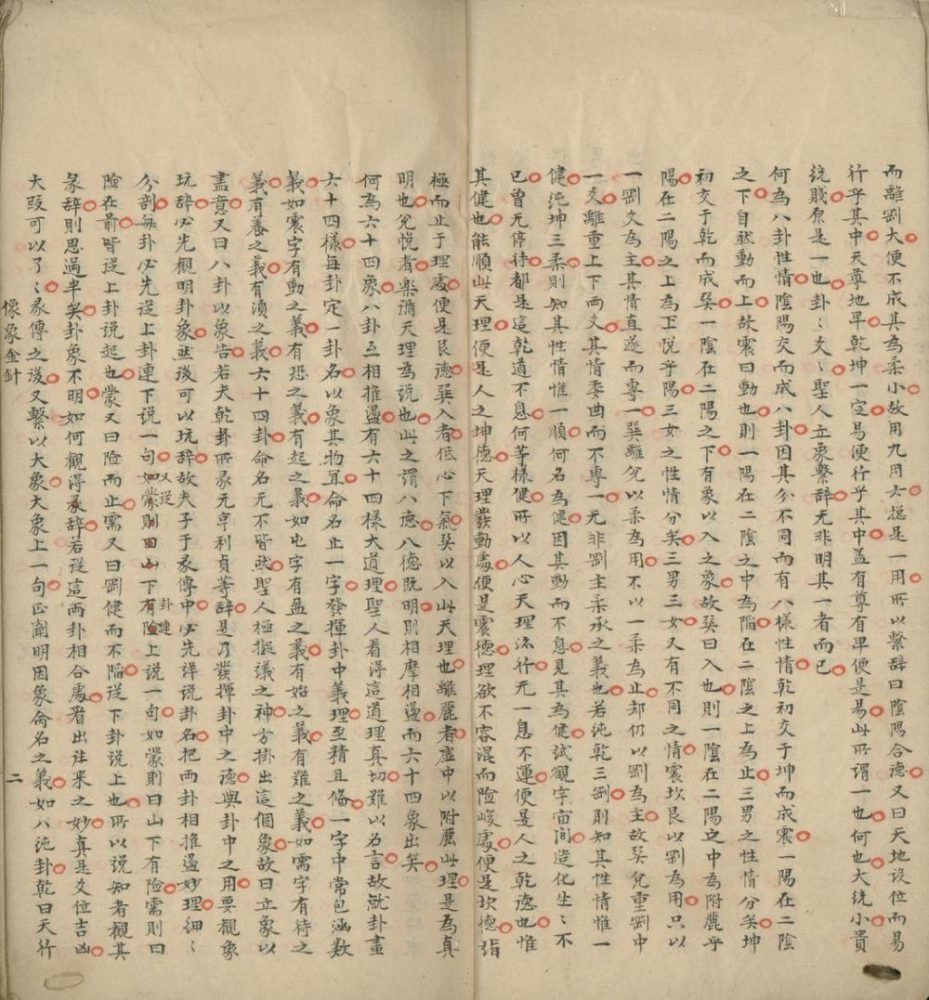 而離剛大便不成其為柔小故用九用六揔是一用所以繫辭曰陰陽合德又曰天地設位而易
行乎其中天尊地卑乾坤一定易便行乎其中盖有尊有卑便是易此所謂一也何也大統小貴
統賤原是一也卦〻爻〻聖人立象繫辭无非明其一者而已
何為八卦性情陰陽交而成八卦因其分不同而有八樣性情乾初交于坤而成震一陽在二陰
之下自然動而上故震曰動也則一陽在二陰之中為陷在二陰之上為止三男之性情分矣坤
初交于乾而成巽一陰在二陽之下有象以入之象故巽曰入也則一陰在二陽之中為附麗乎
陽在二陽之上為上悦乎陽三女之性情分矣三男三女又有不同之情震坎艮以剛為用只以
一剛爻為主其情直遂而專一巽離兌以柔為用不以一柔為止却仍以剛為主故巽兌重剛中
一爻離重上下兩爻其情委曲而不專一无非剛主柔承之義也若純乾三剛則知其性情惟一
健純坤三柔則知其性情惟一順何名為健因其動而不息見其為健試觀宇宙間造化生〻不
已曾无停待都是這乾道不息何等樣健所以人心天理流行无一息不運便是人之乾德也惟
其健也能順此天理便是人之坤德天理發動處便是震德理欲不容混而險峻處便是坎德詣
極而止于理處便是艮德巽入者低心下氣巽以入此天理也離麗者虛中以附麗此理是為真
明也兌悦者樂循天理為說也此之謂八德八德既明則相摩相盪而六十四象出矣
何為六十四象八卦互相推盪有六十四樣大道理聖人看得這道理真切雖以名言故就卦畫
六十四樣每卦定一卦名以象其物冝命名止一字發揮卦中義理至精且偹一字中常包涵數
義如震字有動之義有恐之義有起之義如屯字有盈之義有始之義有難之義如需字有待之
義有養之義有湏之義六十四卦命名无不皆然聖人極擬議之神方掛出這個象故曰立象以
盡意又曰八卦以象告若夫乾卦所象元亨利貞等辭是乃發揮卦中之德與卦中之用要觀象
玩辭必先觀明卦象然後可以玩辭故夫子于彖傳中必先詳說卦名把兩卦相推盪妙理細〻
分剖每卦必先從上卦連下說一句如蒙則曰山下有險又從下卦連上說一句如蒙則曰山下有險需則曰
險在前皆從上卦說起也蒙又曰險而止需又曰剛健而不陷從下卦說上也所以說知者觀其
彖辭則思過半矣卦象不明如何觀得彖辭若從這兩卦相合處看出往來之妙真是爻位吉凶
大致可以了〻彖傳之後又繫以大象大象上一句正闡明因象命名之義如八純卦乾曰天行
像象金針
二